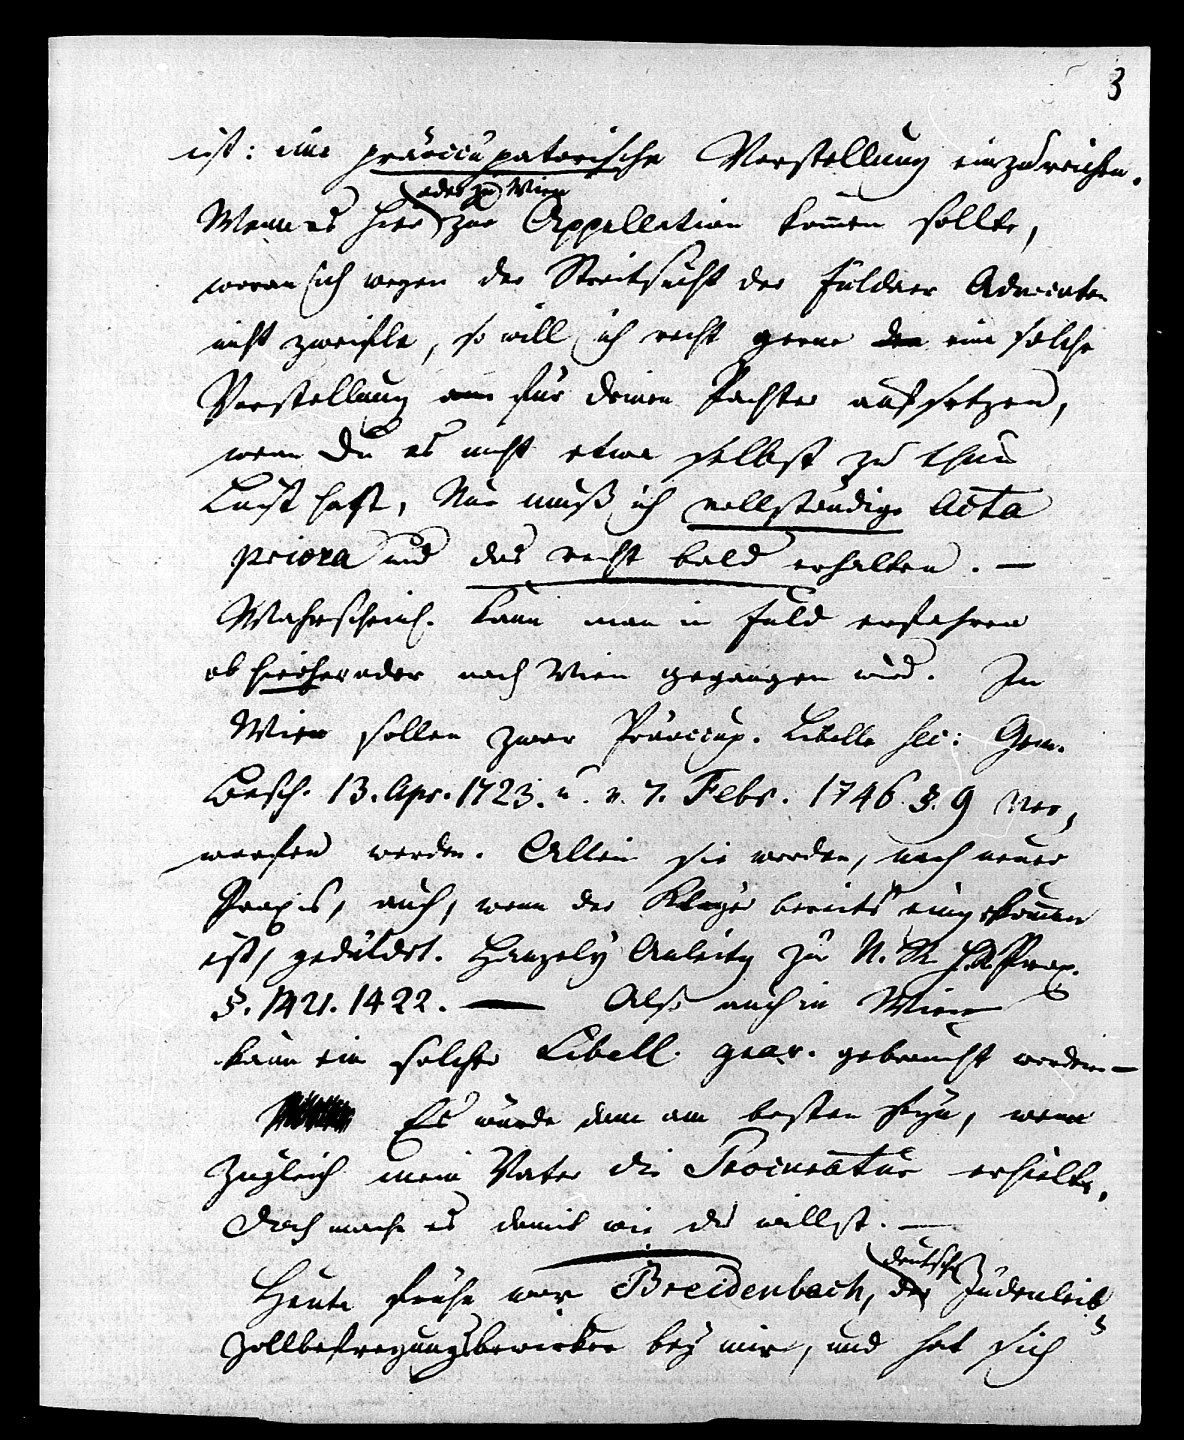 3
ist: eine präoccupatorische Vorstellung einzureichen.
oder zu Wien
Wenn es hier zur Appellation kommen sollte,
woran ich wegen der Streitsucht der Fuldaer Advocaten
nicht zweifle, so will ich recht gerne eine solche
Vorstellung für deinen Pachter aufsetzen,
wenn Du es nicht etwa selbst zu thun
Lust hast, Nur muß ich vollständige Acta
priora und das recht bald erhalten. —
Wahrscheinl. kann man in Fuld erfahren
ob hierher oder nach Wien gegangen wird. In
Wien sollen zwar Präoccup. Libelle sec: Gem.
Besch. 13. Apr. 1723. u. v. 7. Febr. 1746 §. 9 ver,
worfen werden. Allein sie werden, nach neuer
Praxis, auch, wenn der Kläger bereits eingekommen
ist, geduldet. Hanzely Anleitg zur N. R. H. R. Prax.
§. 1421. 1422. — Also auch in Wien
kann ein solcher Libell. grav. gebraucht werden —
Es würde dann am besten seyn, wenn
zugleich mein Vater die Procuratur erhielte,
Doch mache es damit wie du willst. —
deutsche
Heute frühe war Breidenbach, der Judenleib
zollbefreyungsbewirker bey mir, und hat sich